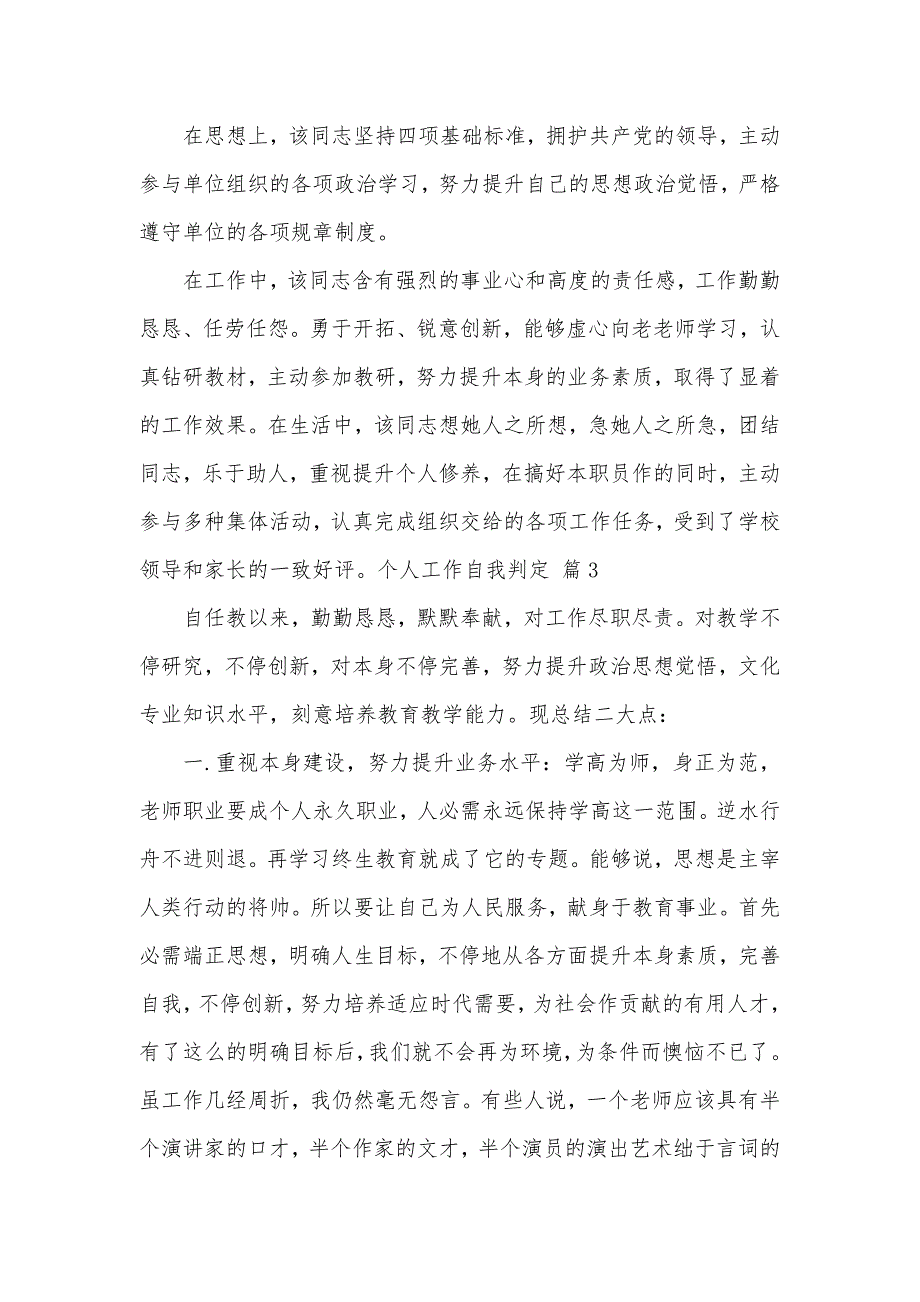 在思想上，该同志坚持四项基础标准，拥护共产党的领导，主动
参与单位组织的各项政治学习，努力提升自己的思想政治觉悟，严格
遵守单位的各项规章制度。
在工作中，该同志含有强烈的事业心和高度的责任感，工作勤勤
恳恳、任劳任怨。勇于开拓、锐意创新，能够虚心向老老师学习，认
真钻研教材，主动参加教研，努力提升本身的业务素质，取得了显着
的工作效果。在生活中，该同志想她人之所想，急她人之所急，团结
同志，乐于助人，重视提升个人修养，在搞好本职员作的同时，主动
参与多种集体活动，认真完成组织交给的各项工作任务，受到了学校
领导和家长的一致好评。个人工作自我判定 篇3
自任教以来，勤勤恳恳，默默奉献，对工作尽职尽责。对教学不
停研究，不停创新，对本身不停完善，努力提升政治思想觉悟，文化
专业知识水平，刻意培养教育教学能力。现总结二大点：
一.重视本身建设，努力提升业务水平：学高为师，身正为范，
老师职业要成个人永久职业，人必需永远保持学高这一范围。逆水行
舟不进则退。再学习终生教育就成了它的专题。能够说，思想是主宰
人类行动的将帅。所以要让自己为人民服务，献身于教育事业。首先
必需端正思想，明确人生目标，不停地从各方面提升本身素质，完善
自我，不停创新，努力培养适应时代需要，为社会作贡献的有用人才，
有了这么的明确目标后，我们就不会再为环境，为条件而懊恼不已了。
虽工作几经周折，我仍然毫无怨言。有些人说，一个老师应该具有半
个演讲家的口才，半个作家的文才，半个演员的演出艺术绌于言词的